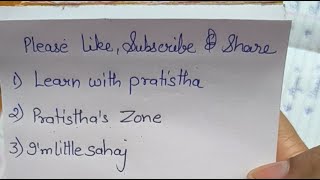 Please Like, Subscribe & Share
1) Learn with pratistha
2) Pratistha's Zone
3) I'm little sahaj